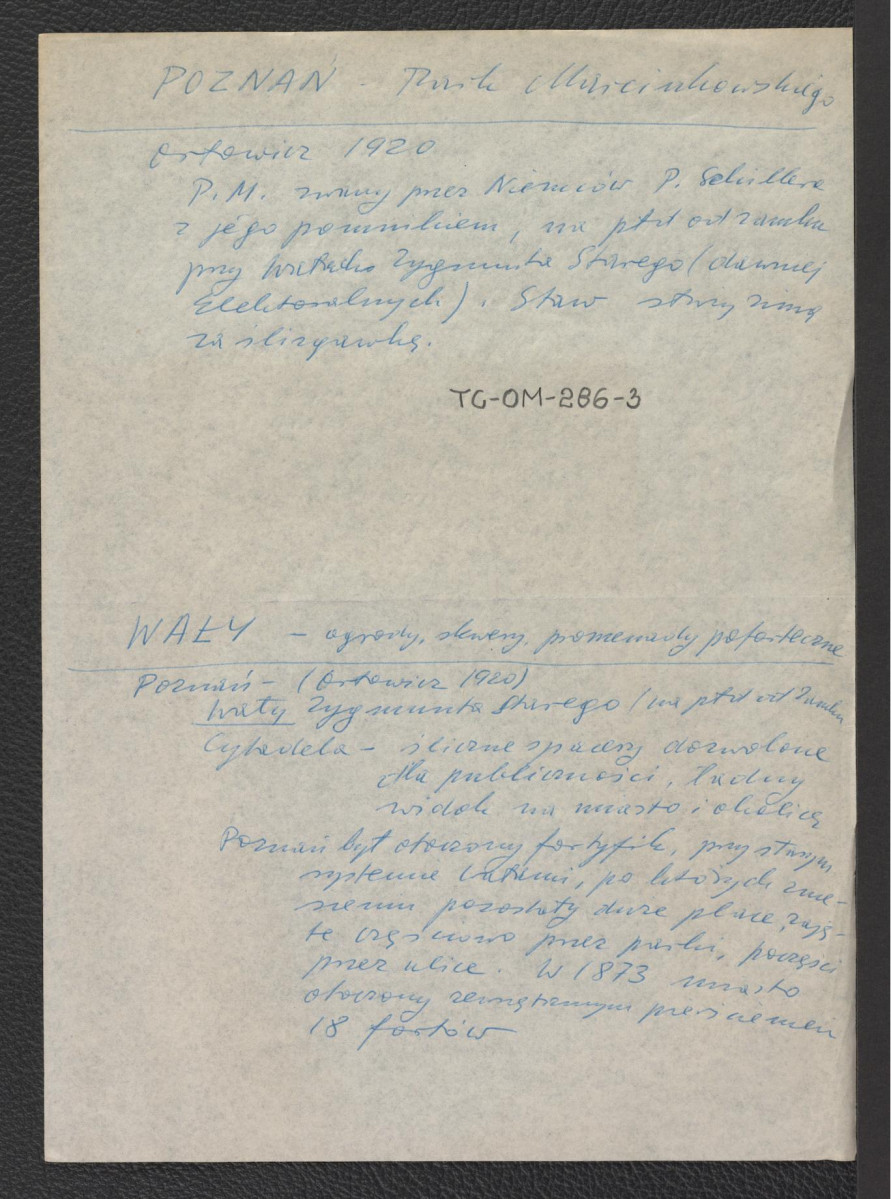 POZNAŃ - Park Marcinkowskiego
Orłowicz 1920
P. M. zwany przez Niemców P. Schillera
z jego pomnikiem, na płd od zamku
przy Wałach Zygmunta Starego (dawniej
Elektoralnych). Staw służy zimą
za ślizgawkę.
TG-OM-286-3
WAŁY - ogrody, skwery, promenady poforteczne
Poznań - (Orłowicz 1920)
Wały Zygmunta Starego / na płd od Zamku
Cytadela - śliczne spacery dozwolone
dla publiczności, ładny
widok na miasto i okolicę
Poznań był otoczony fortyfik. przy starym
systemie wałami, po których znie-
sieniu pozostały duże place, zaję-
te częściowo przez parki, poczęści
przez ulice. W 1873 miasto
otoczony zewnętrznym pierścieniem
18 fortów